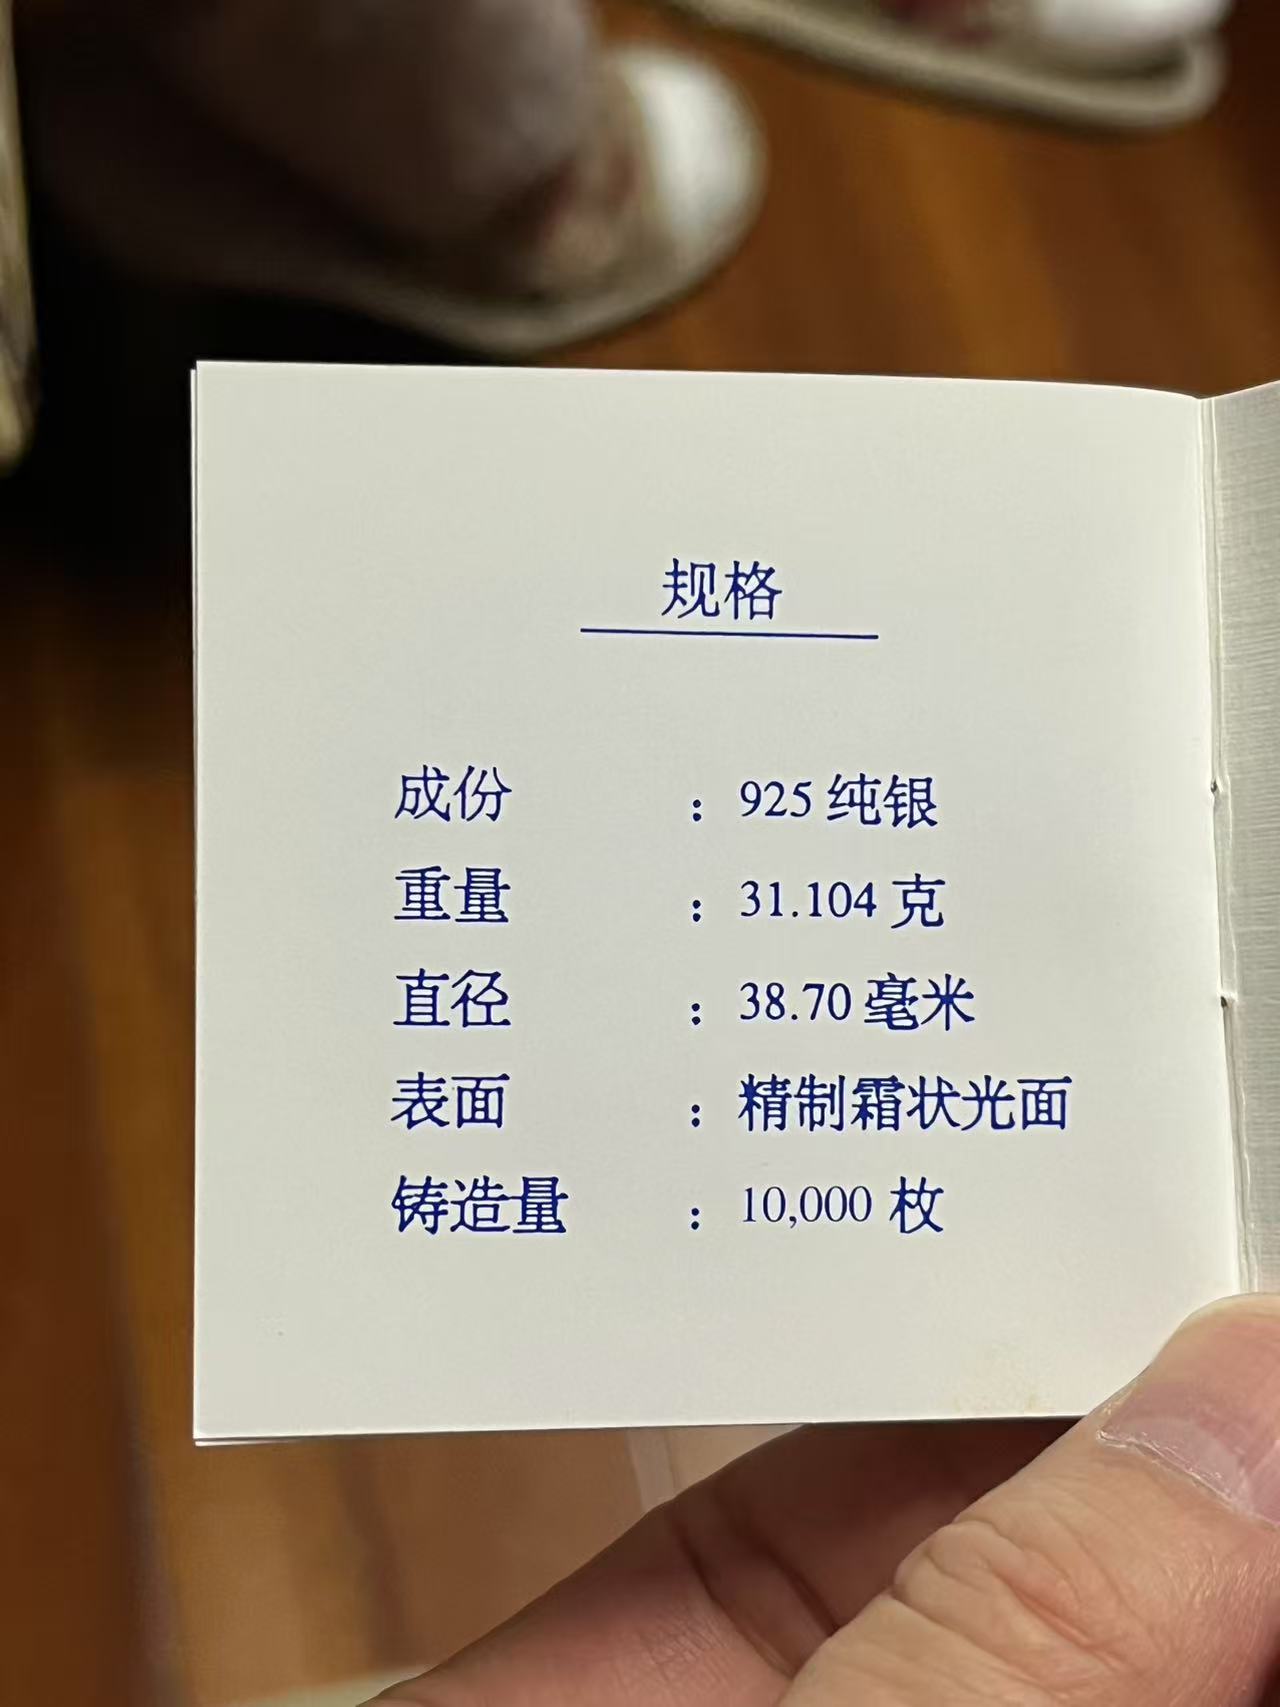 规格
成份 : 925 纯银
重量 : 31.104 克
直径 : 38.70 毫米
表面 : 精制霜状光面
铸造量 : 10,000 枚